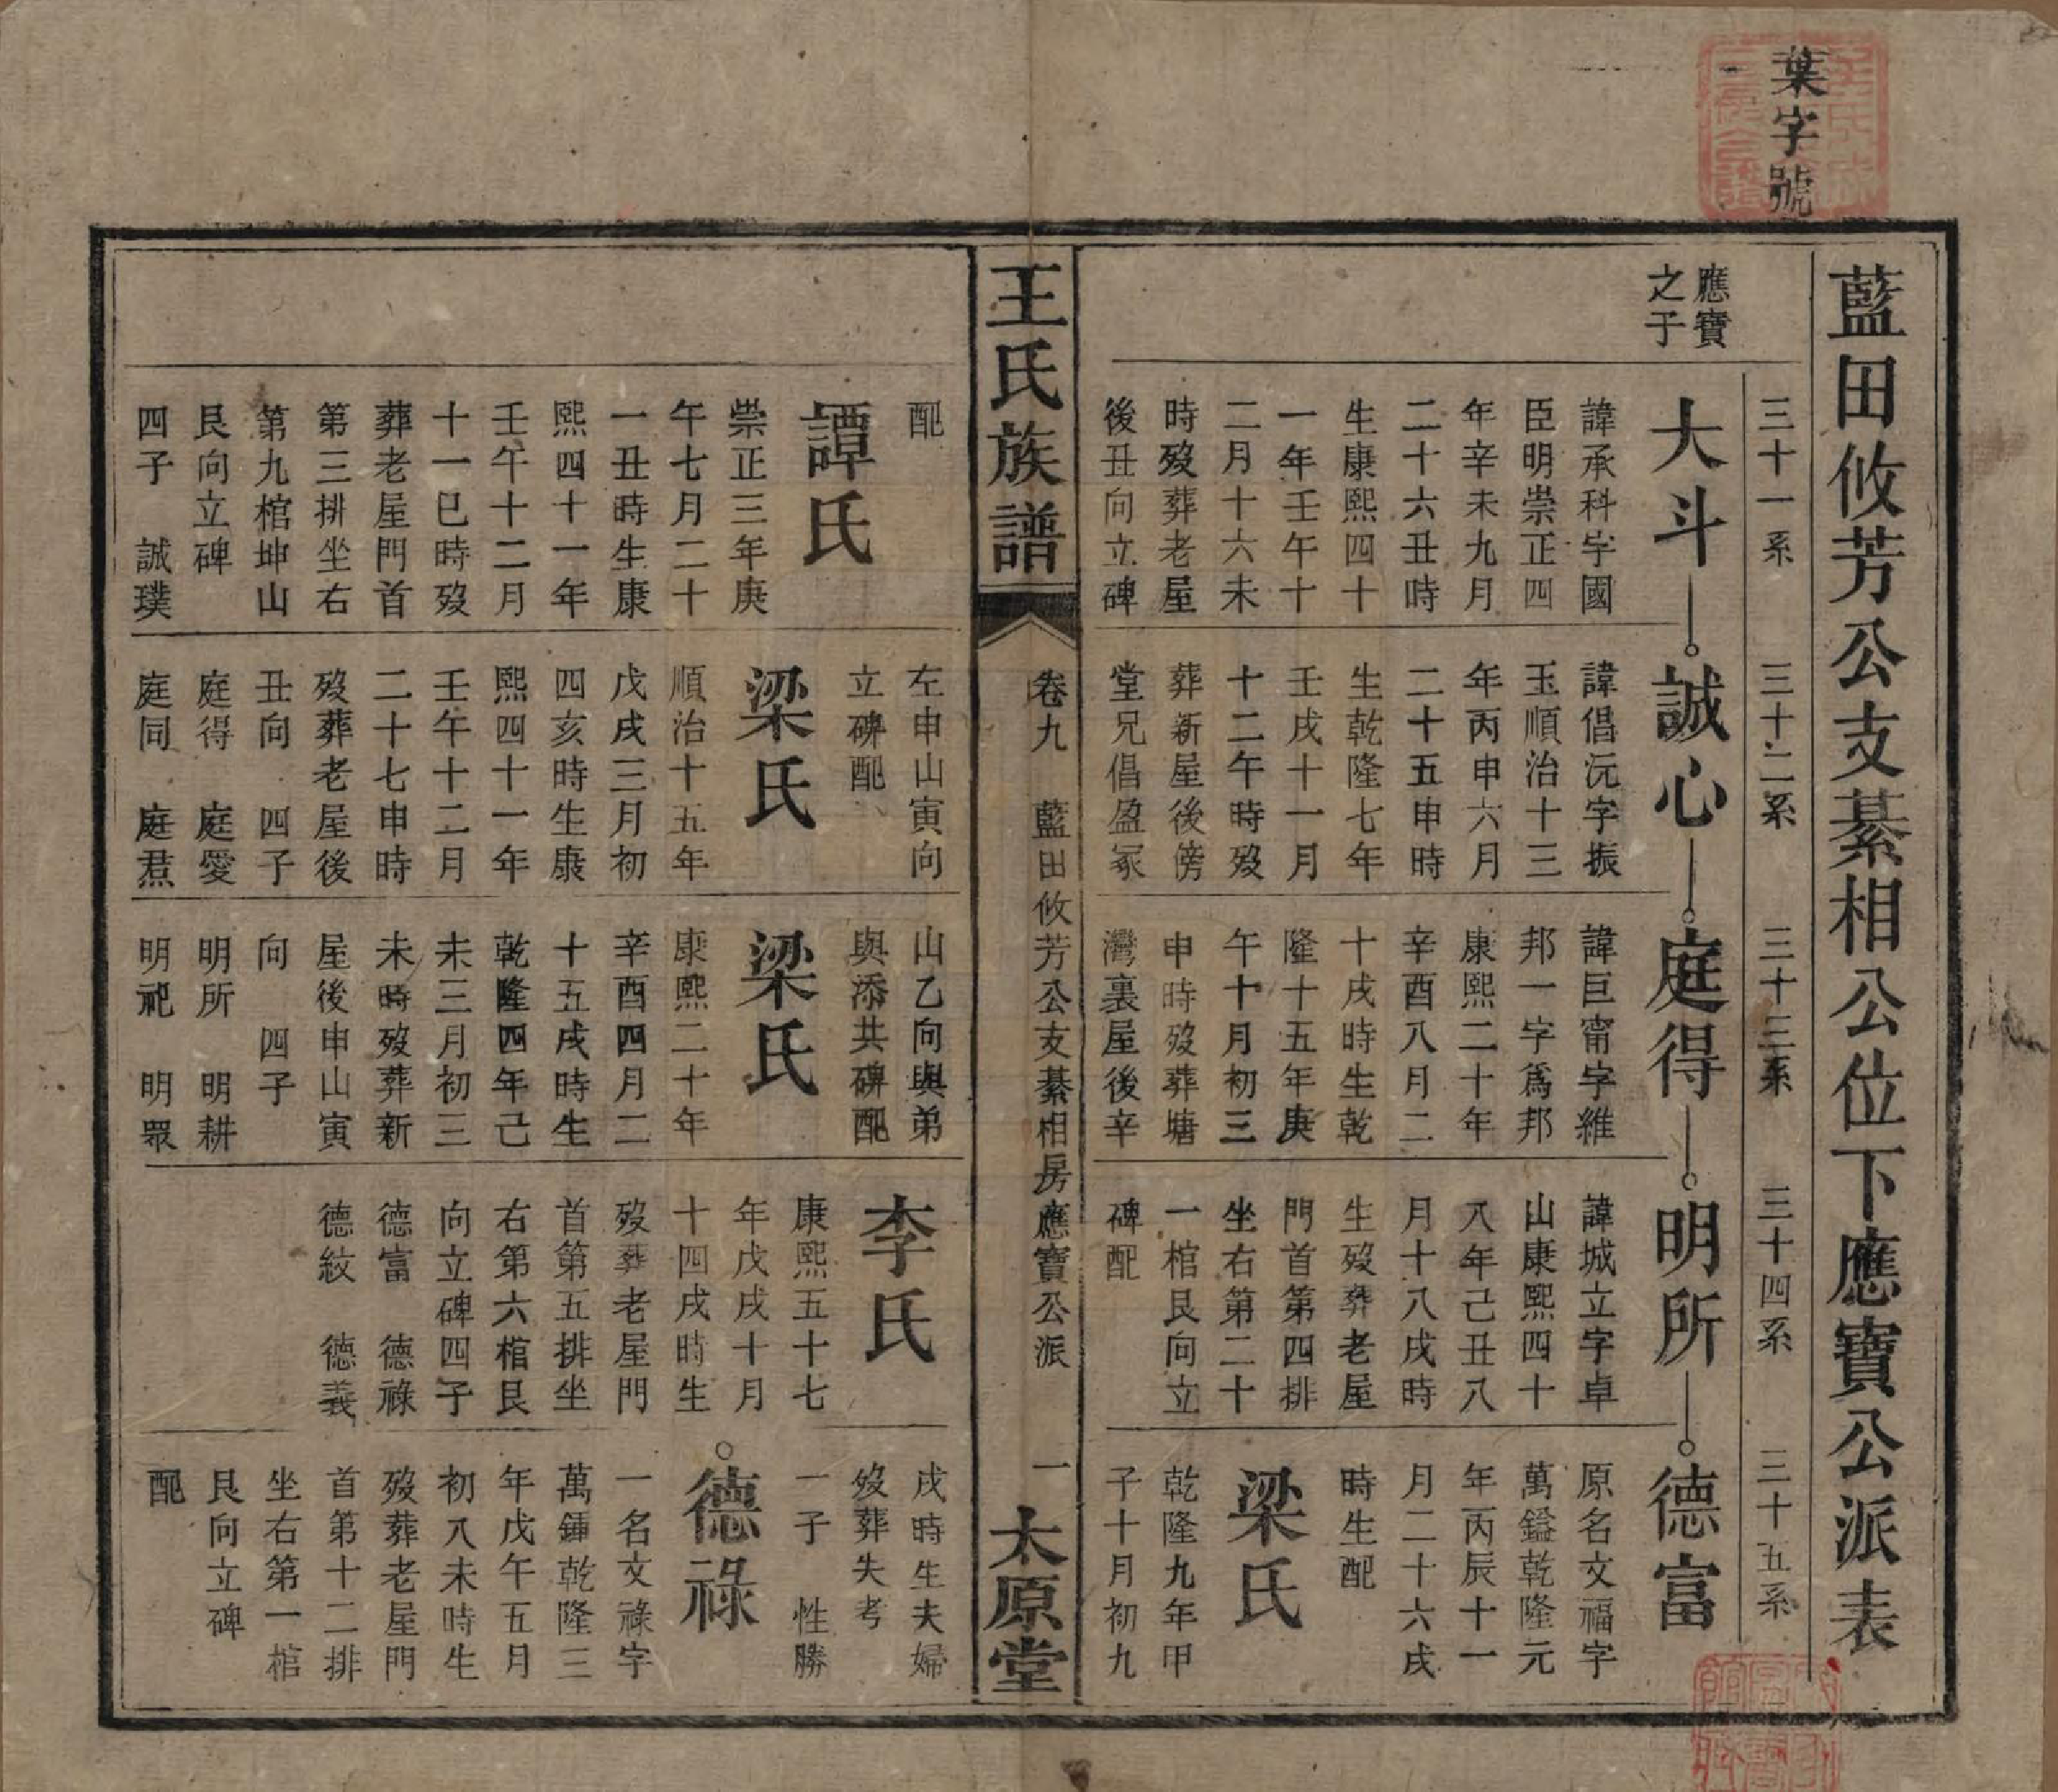 葉字號
藍田攸芳公支綦相公位下應寶公派表
三十一系
三十二系
三十三系
三十四系
三十五系
應寶
之子
大斗
諱承科字國
臣明崇正四
年辛未九月
二十六丑時
生康熙四十
一年壬午十
二月十六未
時歿葬老屋
後丑向立碑
配
譚氏
崇正三年庚
午七月二十
一丑時生康
熙四十一年
壬午十二月
十一巳時歿
葬老屋門首
第三排坐右
第九棺坤山
艮向立碑
四子 誠璞
誠心
諱倡沅字振
玉順治十三
年丙申六月
二十五申時
生乾隆七年
壬戌十一月
十二午時歿
葬新屋後傍
堂兄倡盈冢
左申山寅向
立碑配
梁氏
順治十五年
戊戌三月初
四亥時生康
熙四十一年
壬午十二月
二十七申時
歿葬老屋後
丑向 四子
庭得 庭愛
庭同 庭焄
庭得
諱巨甯字維
邦一字爲邦
康熙二十年
辛酉八月二
十戌時生乾
隆十五年庚
午十月初三
申時歿葬塘
灣裏屋後辛
山乙向與弟
與添共碑配
梁氏
康熙二十年
辛酉四月二
十五戌時生
乾隆四年己
未三月初三
未時歿葬新
屋後申山寅
向 四子
明所 明耕
明祀 明眾
明所
諱城立字卓
山康熙四十
八年己丑八
月十八戌時
生歿葬老屋
門首第四排
坐右第二十
一棺艮向立
碑配
李氏
康熙五十七
年戊戌十月
十四戌時生
歿葬老屋門
首第五排坐
右第六棺艮
向立碑四子
德富 德祿
德紋 德義
德富
原名文福字
萬鎰乾隆元
年丙辰十一
月二十六戌
時生配
梁氏
乾隆九年甲
子十月初九
戌時生夫婦
歿葬失考
一子 性勝
德祿
一名文祿字
萬鍾乾隆三
年戊午五月
初八未時生
歿葬老屋門
首第十二排
坐右第一棺
艮向立碑
配
王氏族譜
卷九 藍田攸芳公支綦相房應寶公派
一
太原堂